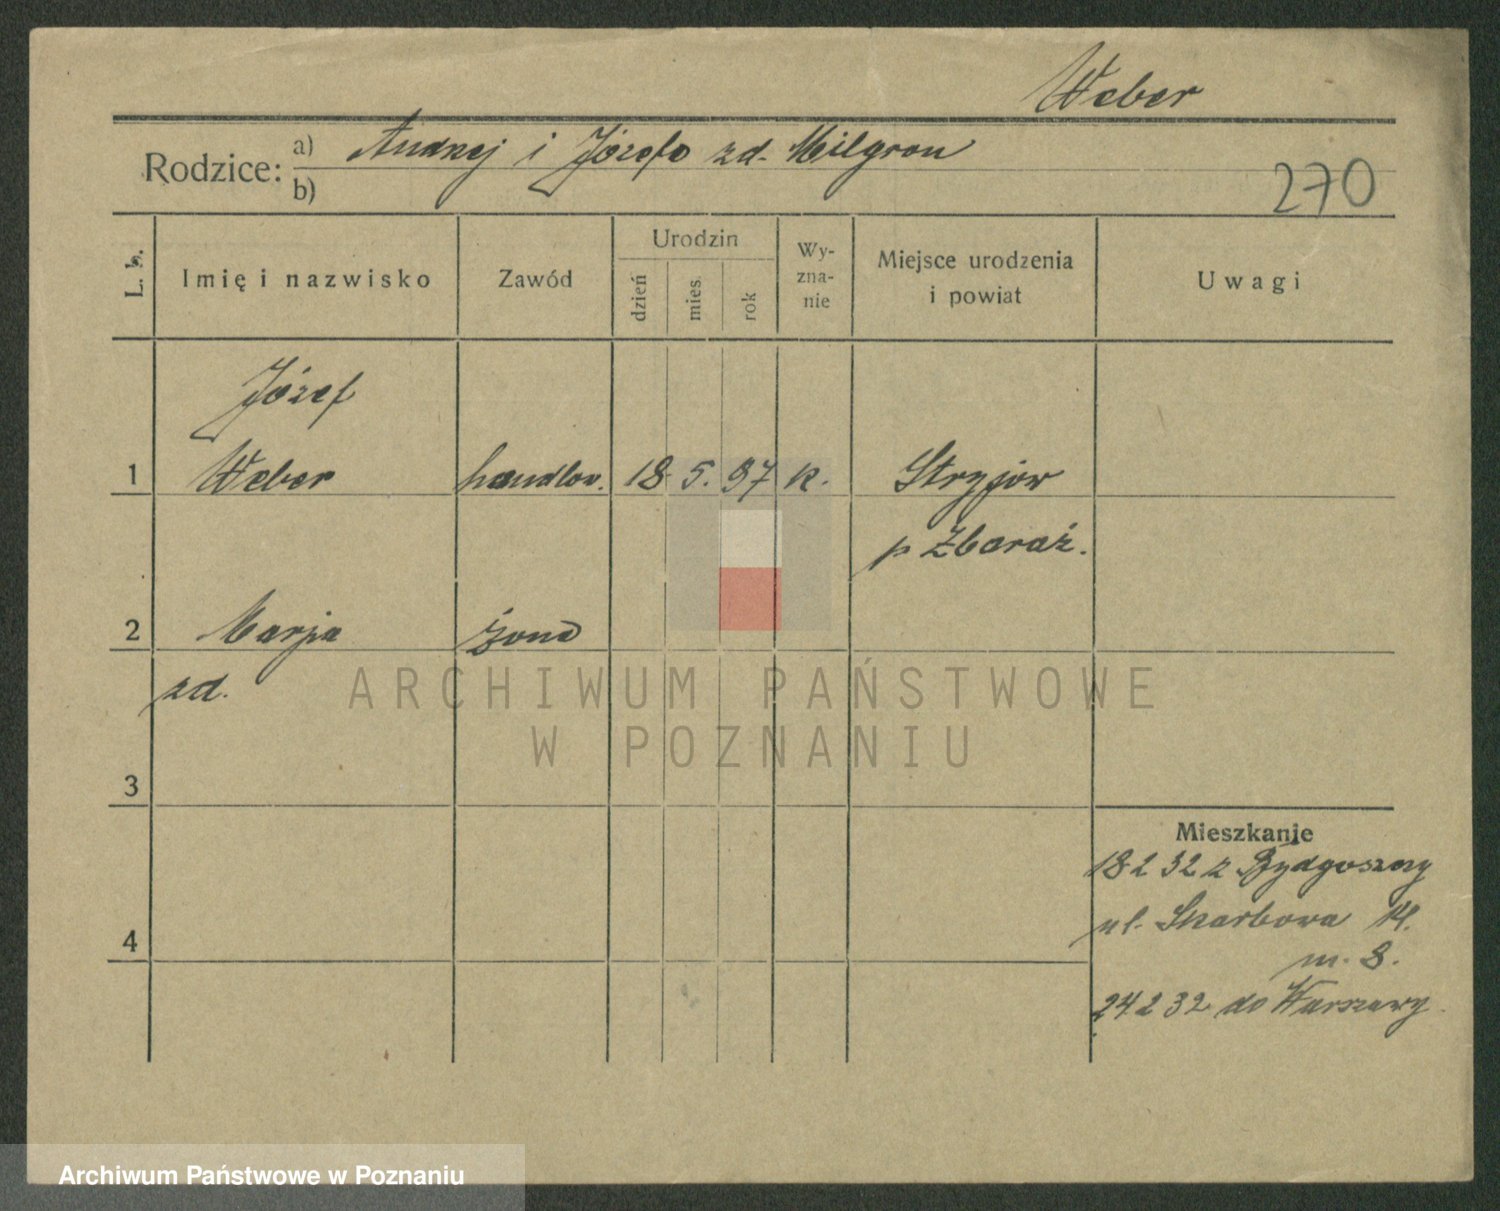 Weber
Rodzice: a) Andrzej i Józefa zd. Milgron
b)
270
L. b.
Imię i nazwisko
Zawód
Urodzin
dzień
mies.
rok
Wy-
zna-
nie
Miejsce urodzenia
i powiat
Uwagi
Józef
1 Weber handlow. 18. 5. 97 k. Stryjów
p Zbaraż.
2 Marja żona
zd.
ARCHIWUM PAŃSTWOWE
W POZNANIU
3
Mieszkanie
18 2 32 z Bydgoszczy
ul. Skarbowa 14.
4
m. 8.
24 2 32 do Warszawy
Archiwum Państwowe w Poznaniu